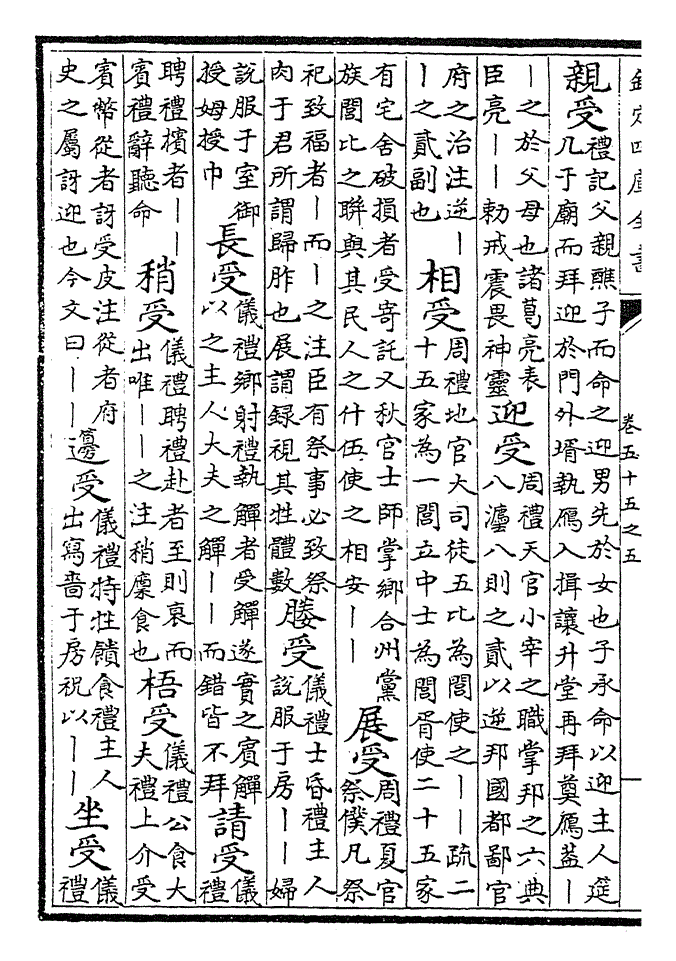 欽定四庫全書
卷五十五之五
親受
禮記父親醮子而命之迎男先於女也子承命以迎主人筵
几于廟而拜迎於門外壻執鴈入揖讓升堂再拜奠鴈蓋丨
丨之於父母也諸葛亮表
臣亮丨丨勅戒震畏神靈
迎受
周禮天官小宰之職掌邦之六典
八灋八則之貳以逆邦國都鄙官
府之治注逆丨
丨之貳副也
相受
周禮地官大司徒五比為閭使之丨丨疏二
十五家為一閭立中士為閭胥使二十五家
有宅舍破損者受寄託又秋官士師掌鄉合州黨
族閭比之聯與其民人之什伍使之相安丨丨
展受
周禮夏官
祭僕凡祭
祀致福者丨而丨之注臣有祭事必致祭
肉于君所謂歸胙也展謂録視其牲體數
媵受
儀禮士昏禮主人
說服于房丨丨婦
說服于室御
授姆授巾
長受
儀禮鄉射禮執觶者受觶遂實之賓觶
以之主人大夫之觶丨丨而錯皆不拜
請受
儀
禮
聘禮擯者丨丨
賓禮辭聽命
稍受
儀禮聘禮赴者至則衰而
出唯丨丨之注稍廩食也
梧受
儀禮公食大
夫禮上介受
賓幣從者訝受皮注從者府
史之屬訝迎也今文曰丨丨
籩受
儀禮特牲饋食禮主人
出寫嗇于房祝以丨丨
坐受
儀
禮